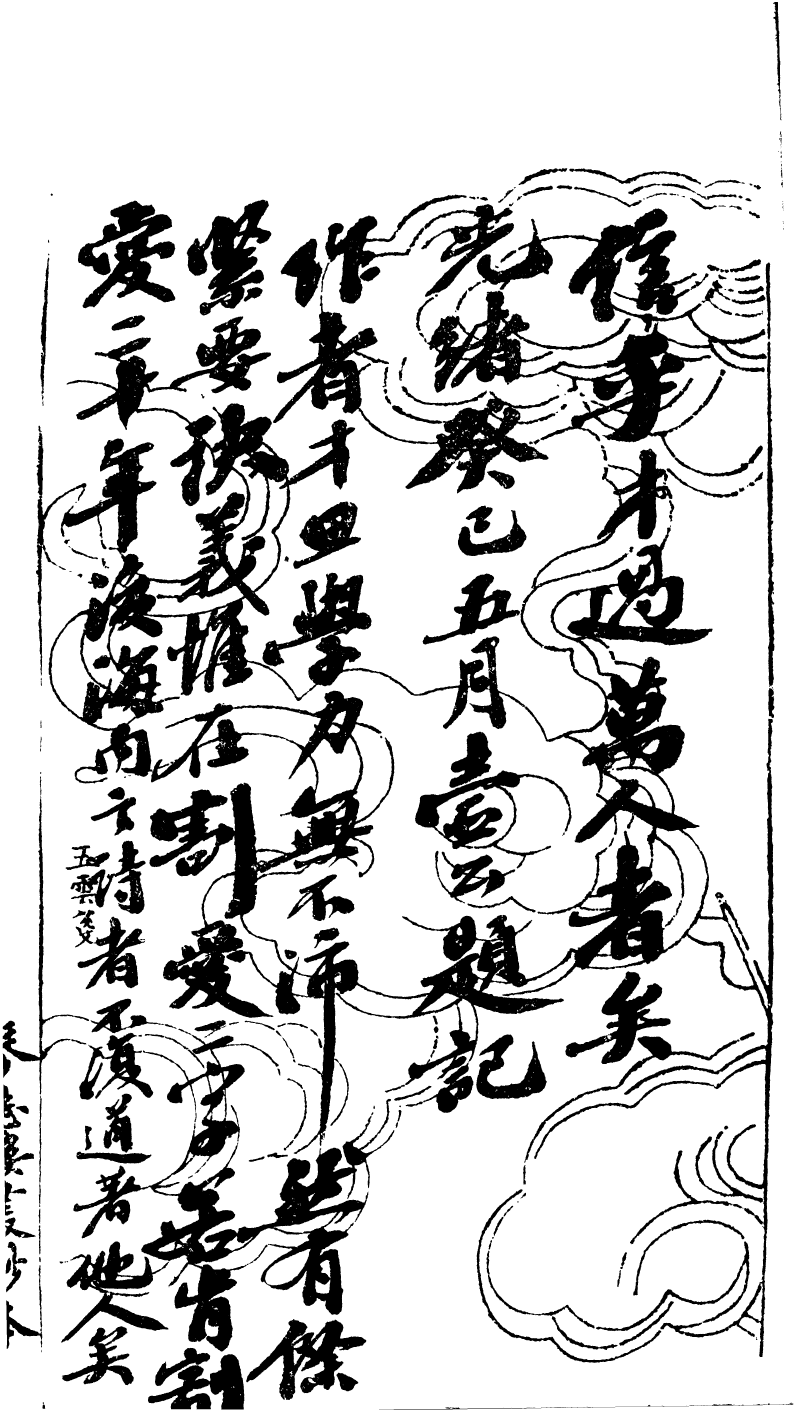 信乎才過萬人者矣
光緒癸巳五月壺公題記
作者才思學力無不沛然有餘
緊要訣義惟在割愛二字若肯割
愛二十年後海內言詩者不復道著他人矣
五雲箋